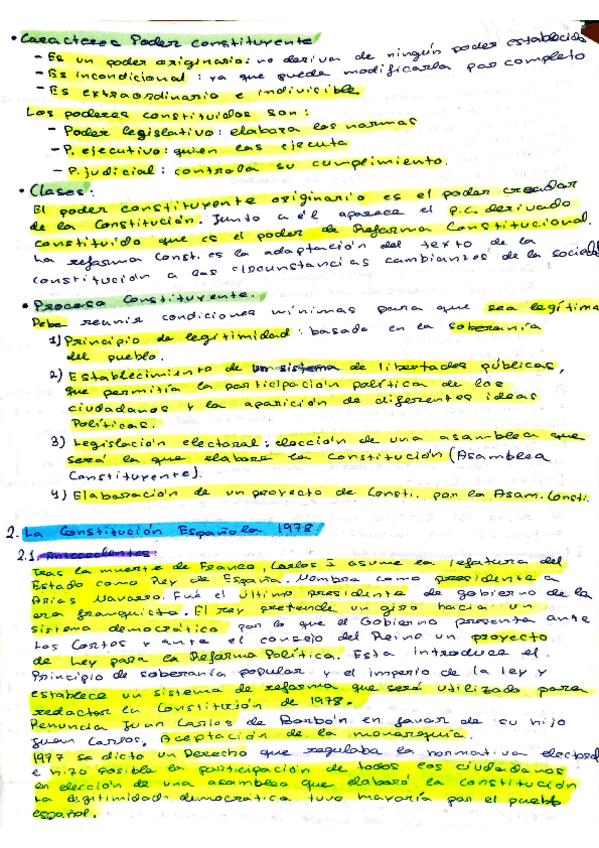 • Caracteres Poder constituyente
- Es un poder originario: no deriva de ningún poder establecido
- Es incondicional: ya que puede modificarla por completo
- Es extraordinario e indivisible
Los poderes constituidos son:
- Poder legislativo: elabora las normas
- P. ejecutivo: quien las ejecuta
- P. judicial: controla su cumplimiento.
• Clases:
El poder constituyente originario es el poder creador
de la Constitución. Junto a él aparece el P.C. derivado
constituido que es el poder de Reforma Constitucional.
La reforma const. es la adaptación del texto de la
constitución a las circunstancias cambiantes de la sociedad
• Proceso Constituyente.
Debe reunir condiciones mínimas para que sea legítima
1) Principio de legitimidad: basada en la soberanía
del pueblo.
2) Establecimiento de un sistema de libertades públicas,
que permitía la participación política de los
ciudadanos y la aparición de diferentes ideas
políticas.
3) Legislación electoral: elección de una asamblea que
será la que elabore la Constitución (Asamblea
Constituyente).
4) Elaboración de un proyecto de Consti. por la Asam. Consti.
2. La Constitución Española 1978
2.1. Antecedentes:
Tras la muerte de Franco, Carlos I asume la jefatura del
Estado como Rey de España. Nombra como presidente a
Arias Navarro. Fué el último presidente de gobierno de la
era franquista. El rey pretende un giro hacia un
sistema democrático por lo que el Gobierno presenta ante
las Cortes y ante el consejo del Reino un proyecto
de Ley para la Reforma Política. Esta introduce el
Principio de soberanía popular y el imperio de la ley y
establece un sistema de reforma que será utilizado para
redactar la Constitución de 1978.
Renuncia Juan Carlos de Borbón en favor de su hijo
Juan Carlos. Aceptación de la monarquía.
1977 se dicto un Derecho que regulaba la normativa electoral
e hizo posible la participación de todos los ciudadanos
en elección de una asamblea que elaboró la constitución
La legitimidad democrática tuvo mayoría por el pueblo
español.